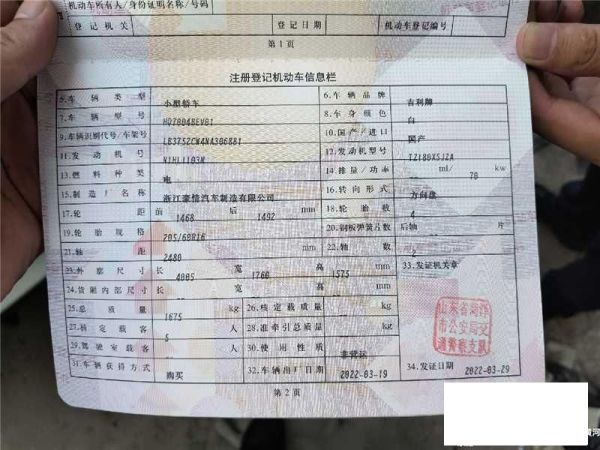 机动车所有人/身份证明名称/号码
登记机关 登记日期 机动车登记编号
第1页
注册登记机动车信息栏
5.车辆类型 小型轿车 6.车辆品牌 吉利牌
7.车辆型号 HQ7004BEV01 8.车身颜色 白
9.车辆识别代号/车架号 10.国产/进口 国产
11.发动机号 12.发动机型号 TZ180XSJZA
13.燃料种类 电 14.排量/功率 ml/ 70 kw
15.制造厂名称 浙江豪情汽车制造有限公司 16.转向形式 方向盘
17.轮距 前 1468 后 1492 mm 18.轮胎数 4
19.轮胎规格 205/60R16 20.钢板弹簧片数 后轴 片
21.轴距 2480 mm 22.轴数 2
23.外廓尺寸 长 4005 宽 1760 高 1575 mm 33.发证机关章
24.货厢内部尺寸 长 宽 高 mm
25.总质量 1675 kg 26.核定载质量 kg
27.核定载客 5 人 28.准牵引总质量 kg
29.驾驶室载客 人 30.使用性质 非营运
31.车辆获得方式 购买 32.车辆出厂日期 2022-03-19 34.发证日期 2022-03-29
第2页